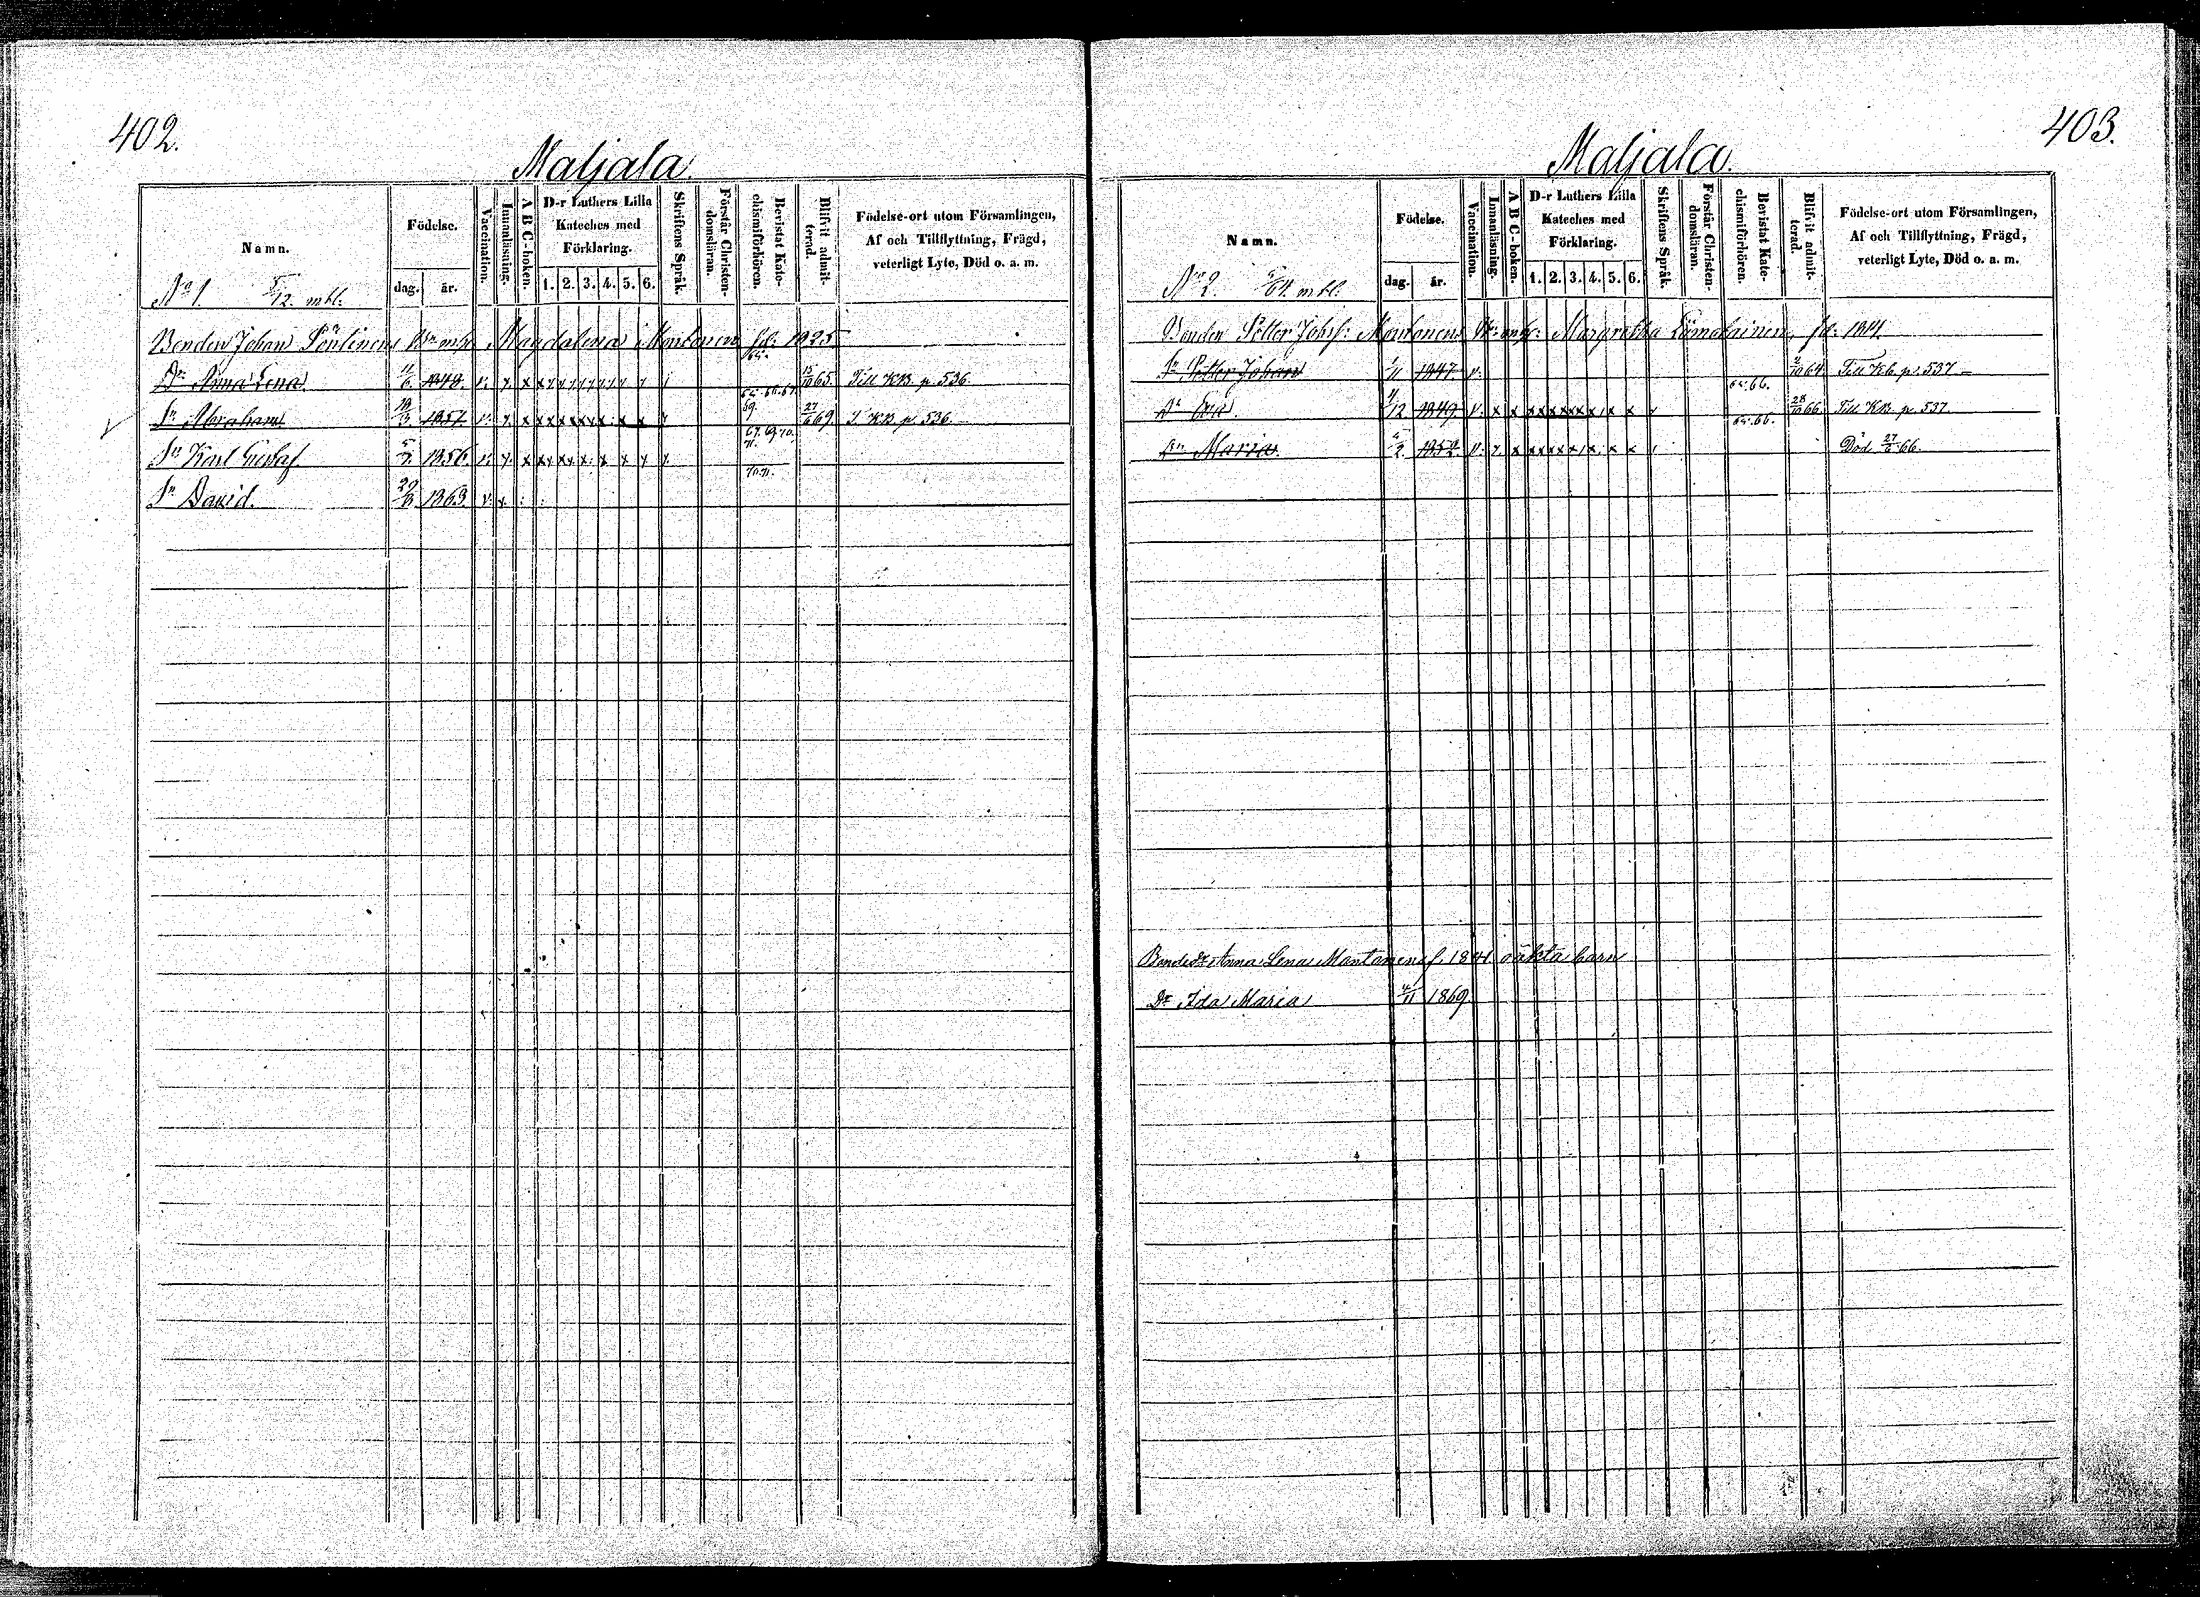 402.
Maljala.
Namn.
Födelse.
dag. år.
Vaccination.
Innanläsning.
A B C-boken.
D-r Luthers Lilla
Kateches med
Förklaring.
1. 2. 3. 4. 5. 6.
Skriftens Språk.
Förstår Christen-
domsläran.
Bevistat Kate-
chismiförhören.
Blifvit admit-
terad.
Födelse-ort utom Församlingen,
Af och Tillflyttning, Frägd,
veterligt Lyte, Död o. a. m.
No 1. 5/12. mtl.
Bonden Johan Magdalena Montonen fd: 1825
65.
Dr Anna Lena 11/6. 1848. v. x x x x x x x x 15/10 65. Till KB. p. 536.
65. 66. 67.
69.
Sn Abraham 1851 v. x x x x x x x x x 27/6 69. T KB p 536.
67. 69. 70.
71.
Sn Karl Gustaf 5/7. 1856. v. x x x x x x x x
70. 71.
Sn David. 29/8 1863. v. x
403.
Maljala.
Namn.
Födelse.
dag. år.
Vaccination.
Innanläsning.
A B C-boken.
D-r Luthers Lilla
Kateches med
Förklaring.
1. 2. 3. 4. 5. 6.
Skriftens Språk.
Förstår Christen-
domsläran.
Bevistat Kate-
chismiförhören.
Blifvit admit-
terad.
Födelse-ort utom Församlingen,
Af och Tillflyttning, Frägd,
veterligt Lyte, Död o. a. m.
No 2. 5/64. mtl.
Bonden Petter Johsf: Montonens Margretha Liimatainen, fd: 1814.
Sn Petter Johan 1/11 1847. v. 2/10 64. Till KB. p. 537
65. 66.
Dr Eva. 4/12 1849 v. x x x x x x x x x 28/10 66. Till KB. p. 537.
65. 66.
Dr Maria 2. 1852. v. x x x x x x x x Död 27/6 66.
Bonded. Anna Lena Montonens f. 1841. oäkta barn
Dr Ida Maria 4/11 1869